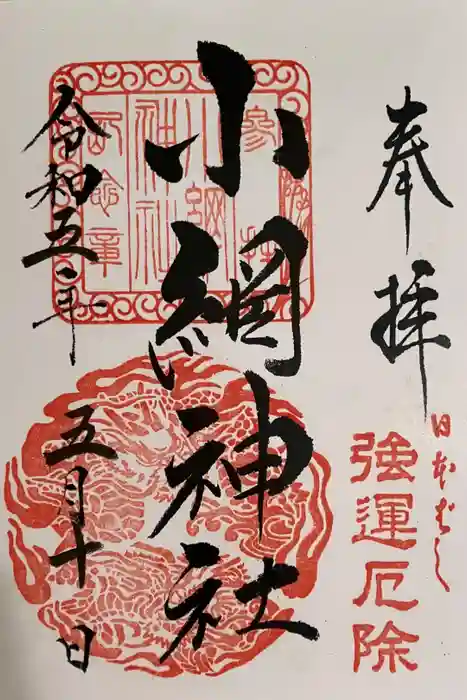 奉拝
日本ばし
強運厄除
小網神社
令和五年
五月十日
参拝
小網
神社
記念章